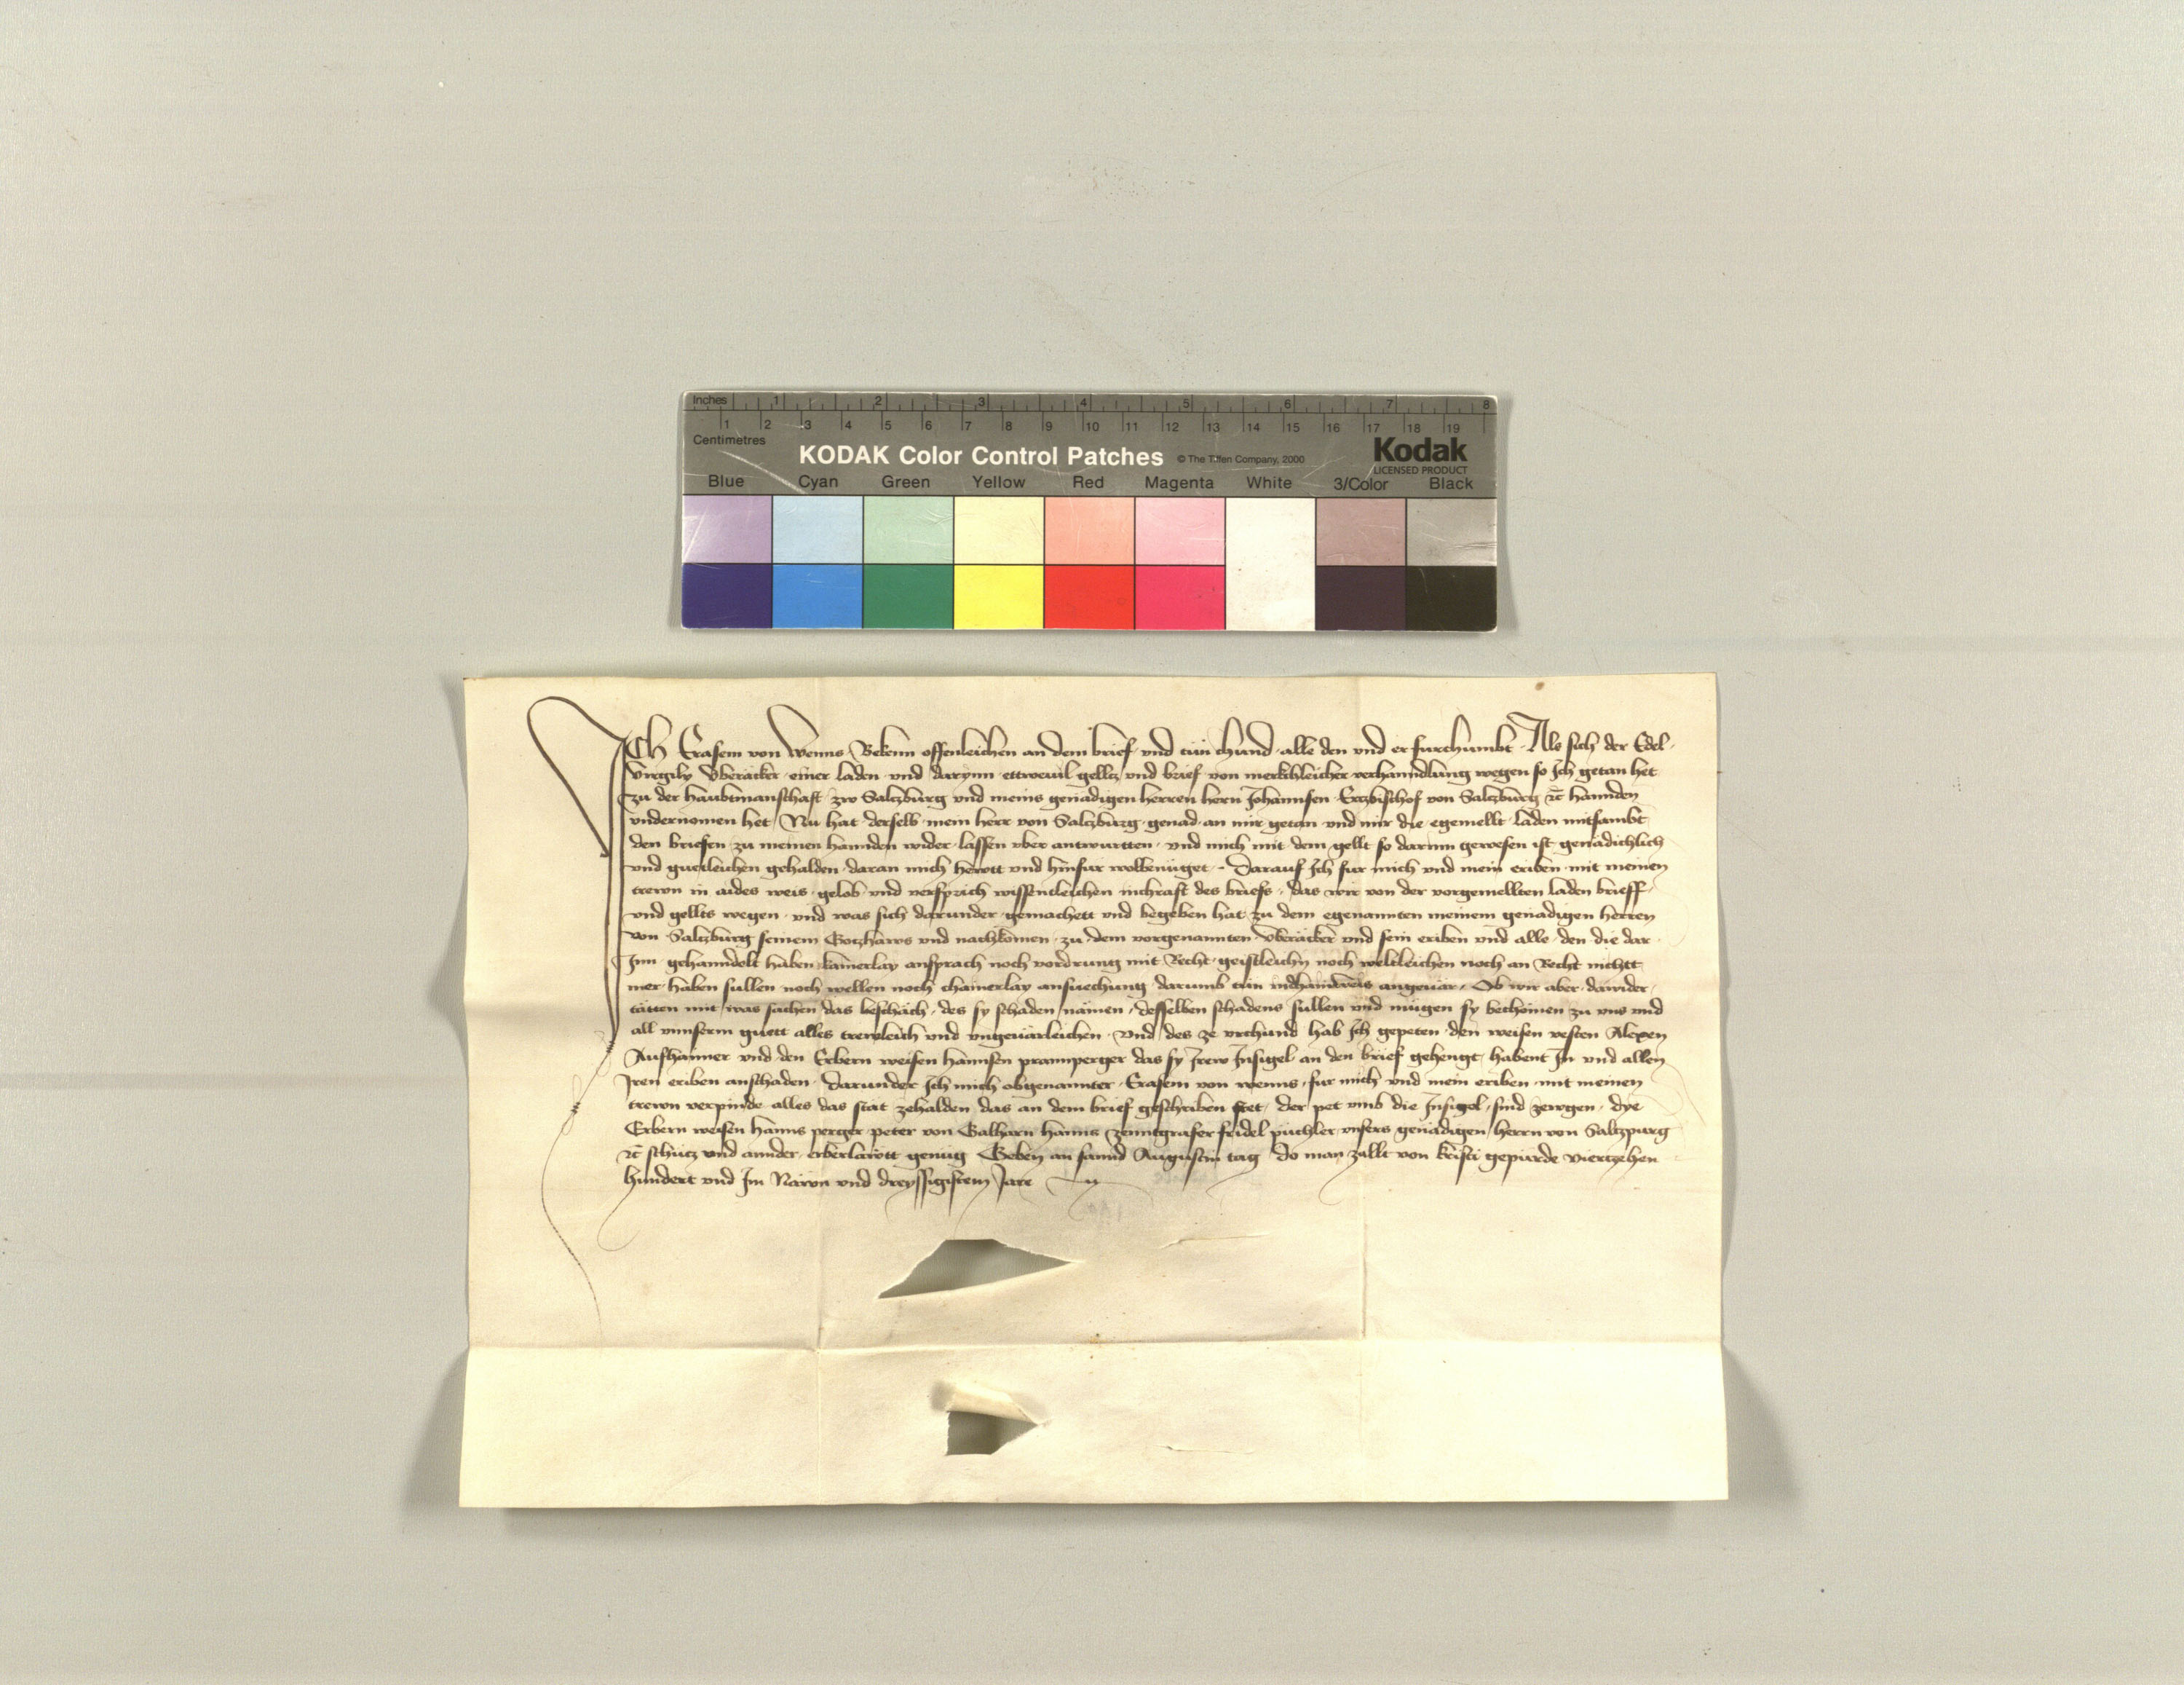 Inches 1 2 3 4 5 6 7 8
1 2 3 4 5 6 7 8 9 10 11 12 13 14 15 16 17 18 19
Centimetres
KODAK Color Control Patches © The Tiffen Company, 2000 Kodak
LICENSED PRODUCT
Blue Cyan Green Yellow Red Magenta White 3/Color Black
Ich Erasem von Wenns Bekenn offenleichen an dem brief und tun chund alle den und er furchumbt Als sich der Edel
Virgily Vberäcker einer laden und darynn ettwevil gelltz und brief von merkchleicher verhanndlung wegen so Ich getan het
zu der haubtmanschaft zw Saltzburg und meins genädigen herren hern Johannsen Ertzbischof von Saltzburg etc hannden
undernomen het Nu hat derselb mein herr von Saltzburg genad an mir getan und mir die egemellt laden mitsambt
den briefen zu meinen hannden wider lassen uber antwurtten und mich mit dem gellt so darinn gewesen ist genädichlich
und guetleichen gehalden daran mich hewtt und hinfur wolbenüget Darauf Ich fur mich und mein eriben mit meinen
trewn in aides weis gelob und versprich wissentleichen inchraft des briefs das wir von der vorgemellten laden brieff
und gellts wegen und was sich darunder gemachett und begeben hat zu dem egenannten meinem genädigen herren
von Saltzburg seinem Gotzhaws und nachkomen zu dem vorgenannten Vberäcker und sein eriben und alle den die dar
Inn gehanndelt haben kainerlay ansprach noch vordrung mit Recht geistleichn noch weltleichen noch an Recht nichtt
mer haben sullen noch wellen noch chainerlay ansuechung darumb tun angevär Ob wir aber dawider
tätten mit was sachen das beschäch des sy schaden nämen desselben schadens sullen und mügen sy bechömen zu uns und
all unnserm guett alles trewleich und ungevärleichen Und des ze urchund hab Ich gepeten den weisen vesten Alexen
Aufhaimer und den Erbern weisen Hannsen prannperger das sy Irew Insigel an den brief gehengt habent In und allen
Iren eriben anschaden darunder Ich mich obgenannter Erasem von wenns fur mich und mein eriben mit meinen
trewn verpinde alles das stät zehalden das an dem brief geschriben stet der pet umb die Insigel sind zewgen dye
Erbern weisen hanns perger peter von Galharn hanns fridel puchler unsers genädigen herrn von Saltzpurg
etc schütz und annder erberlawtt genüg Geben an sannd Augustin tag do man zallt von kristi gepürde viertzehen
hundert und Im Näwn und dreyssigistem Jare